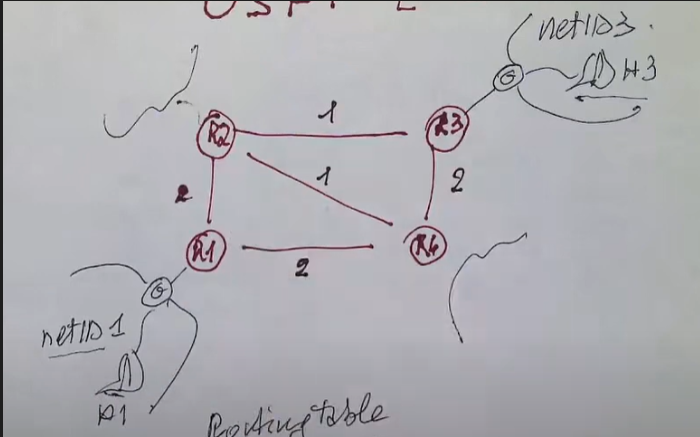 netID3.
H3
R2
1
R3
1
2
2
R1
2
R4
netID1
H1
Routing table